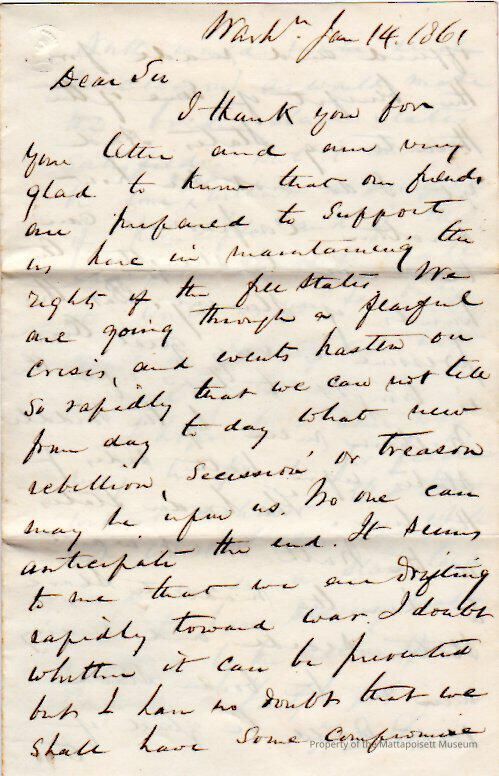 Washn Jan 14. 1861
Dear Sir
I thank you for
your letter and am very
glad to know that our friends
are prepared to support
us here in maintaining the
rights of the free States We
are going through a fearful
crisis, and events hasten on
so rapidly that we can not tell
from day to day what new
rebellion, secession, or treason
may be upon us. No one can
anticipate the end. It seems
to me that we are drifting
rapidly toward war. I doubt
whether it can be prevented
but I have no doubt that we
shall have some compromise
Property of the Mattapoisett Museum